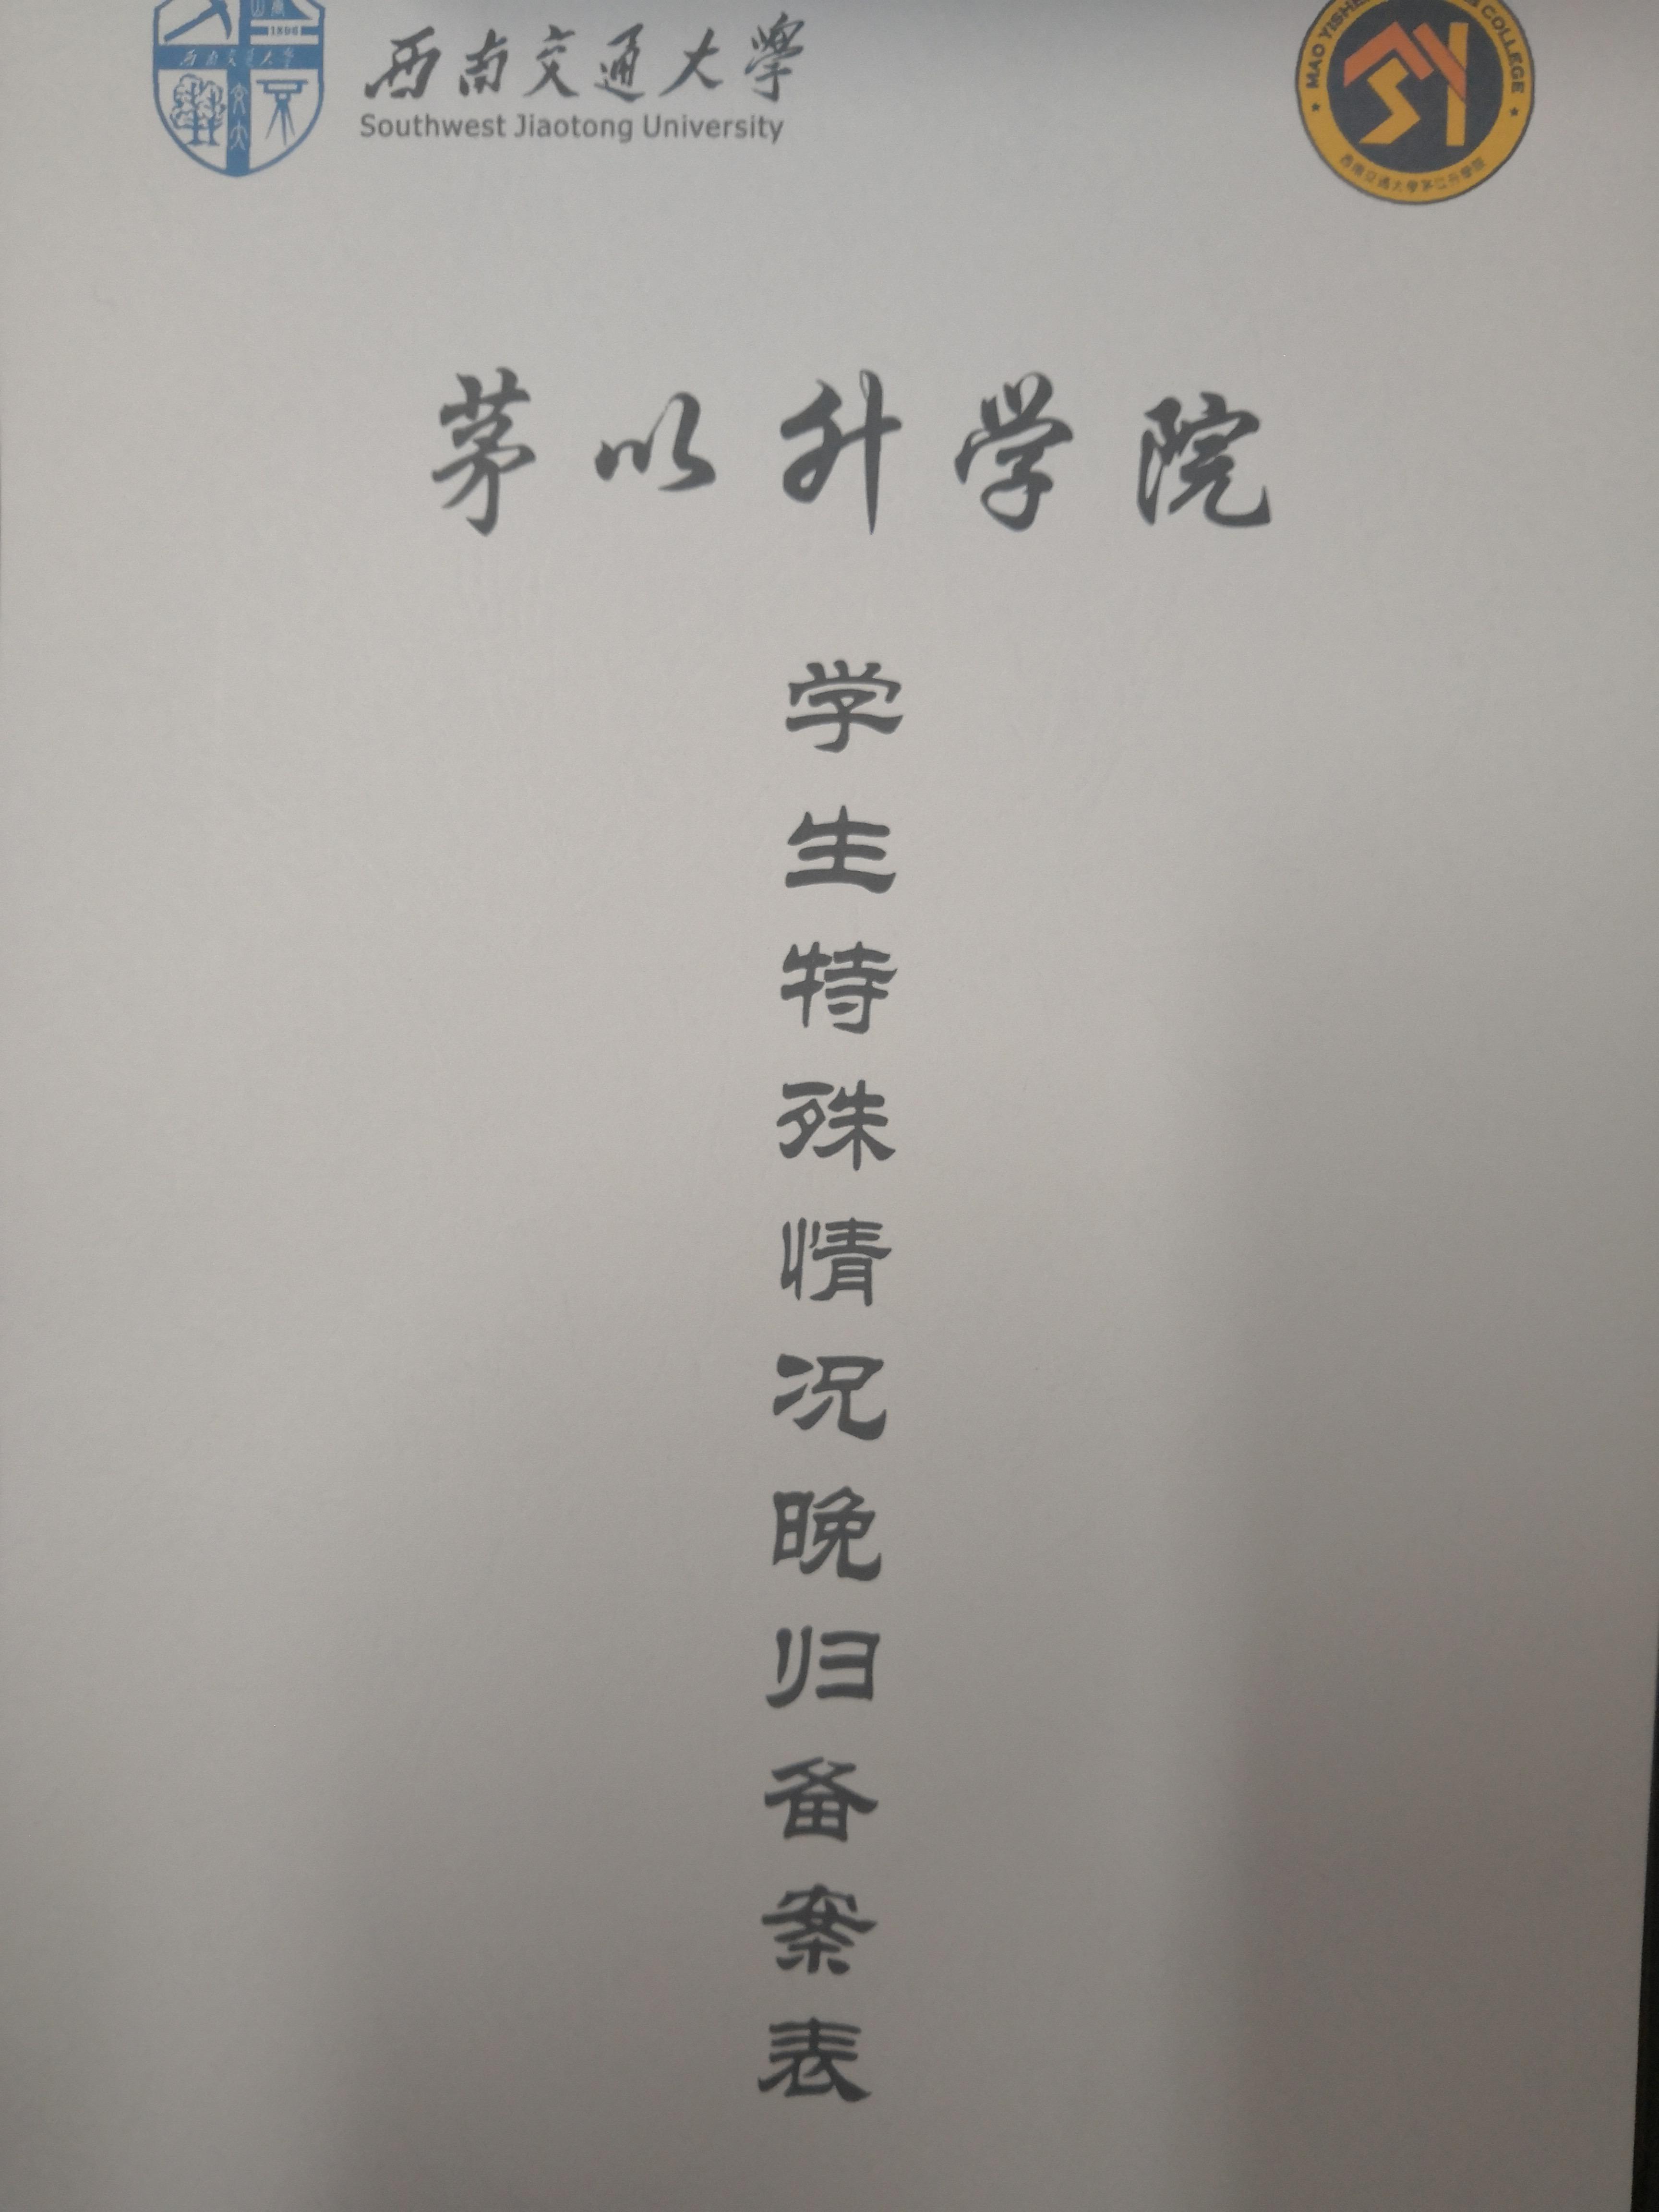 1896
西南交通大学
西南交通大學
Southwest Jiaotong University
MAO YISHE
COLLEGE
西南交通大學茅以升學院
茅以升学院
学
生
特
殊
情
况
晚
归
备
案
表